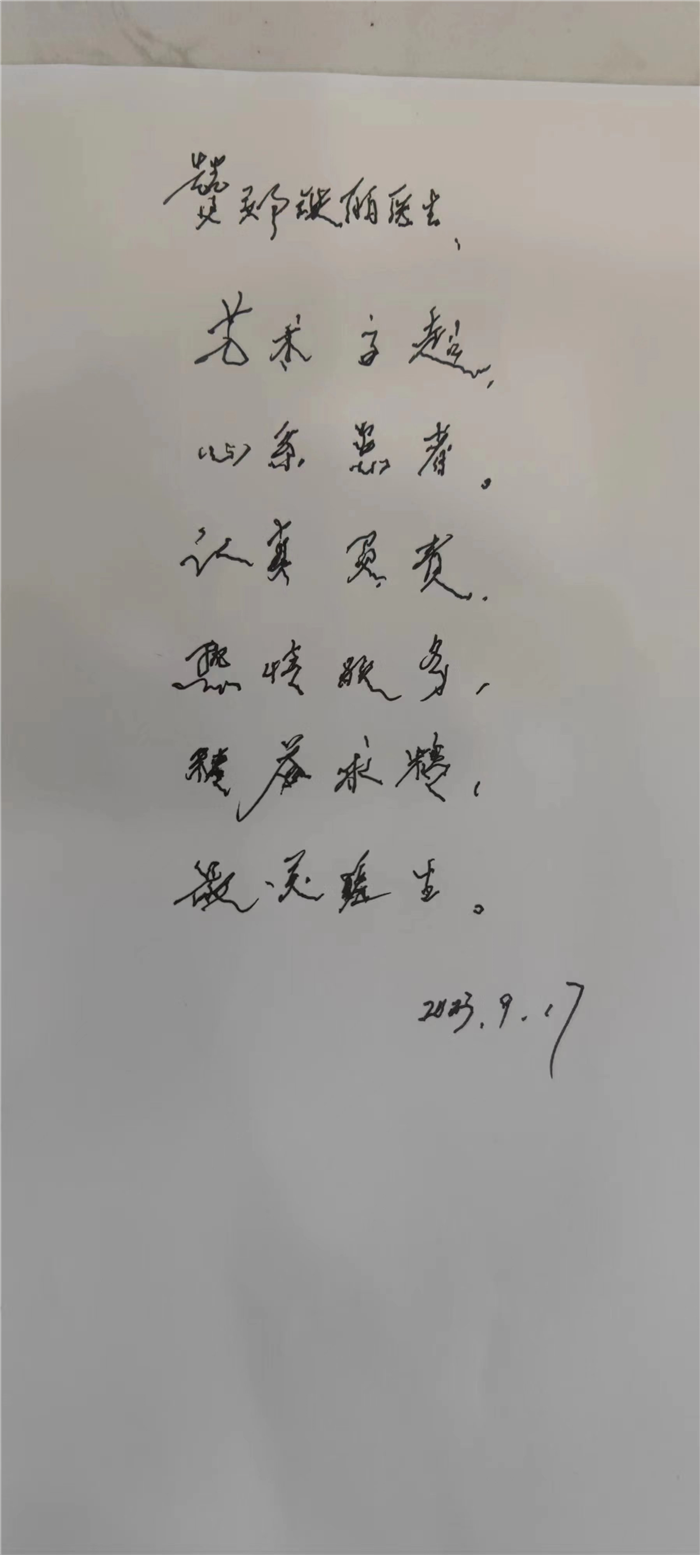 赞郑璇丽医生、
艺术高超,
心系患者。
认真负责、
热情服务,
精益求精,
最美医生。
2023.9.17